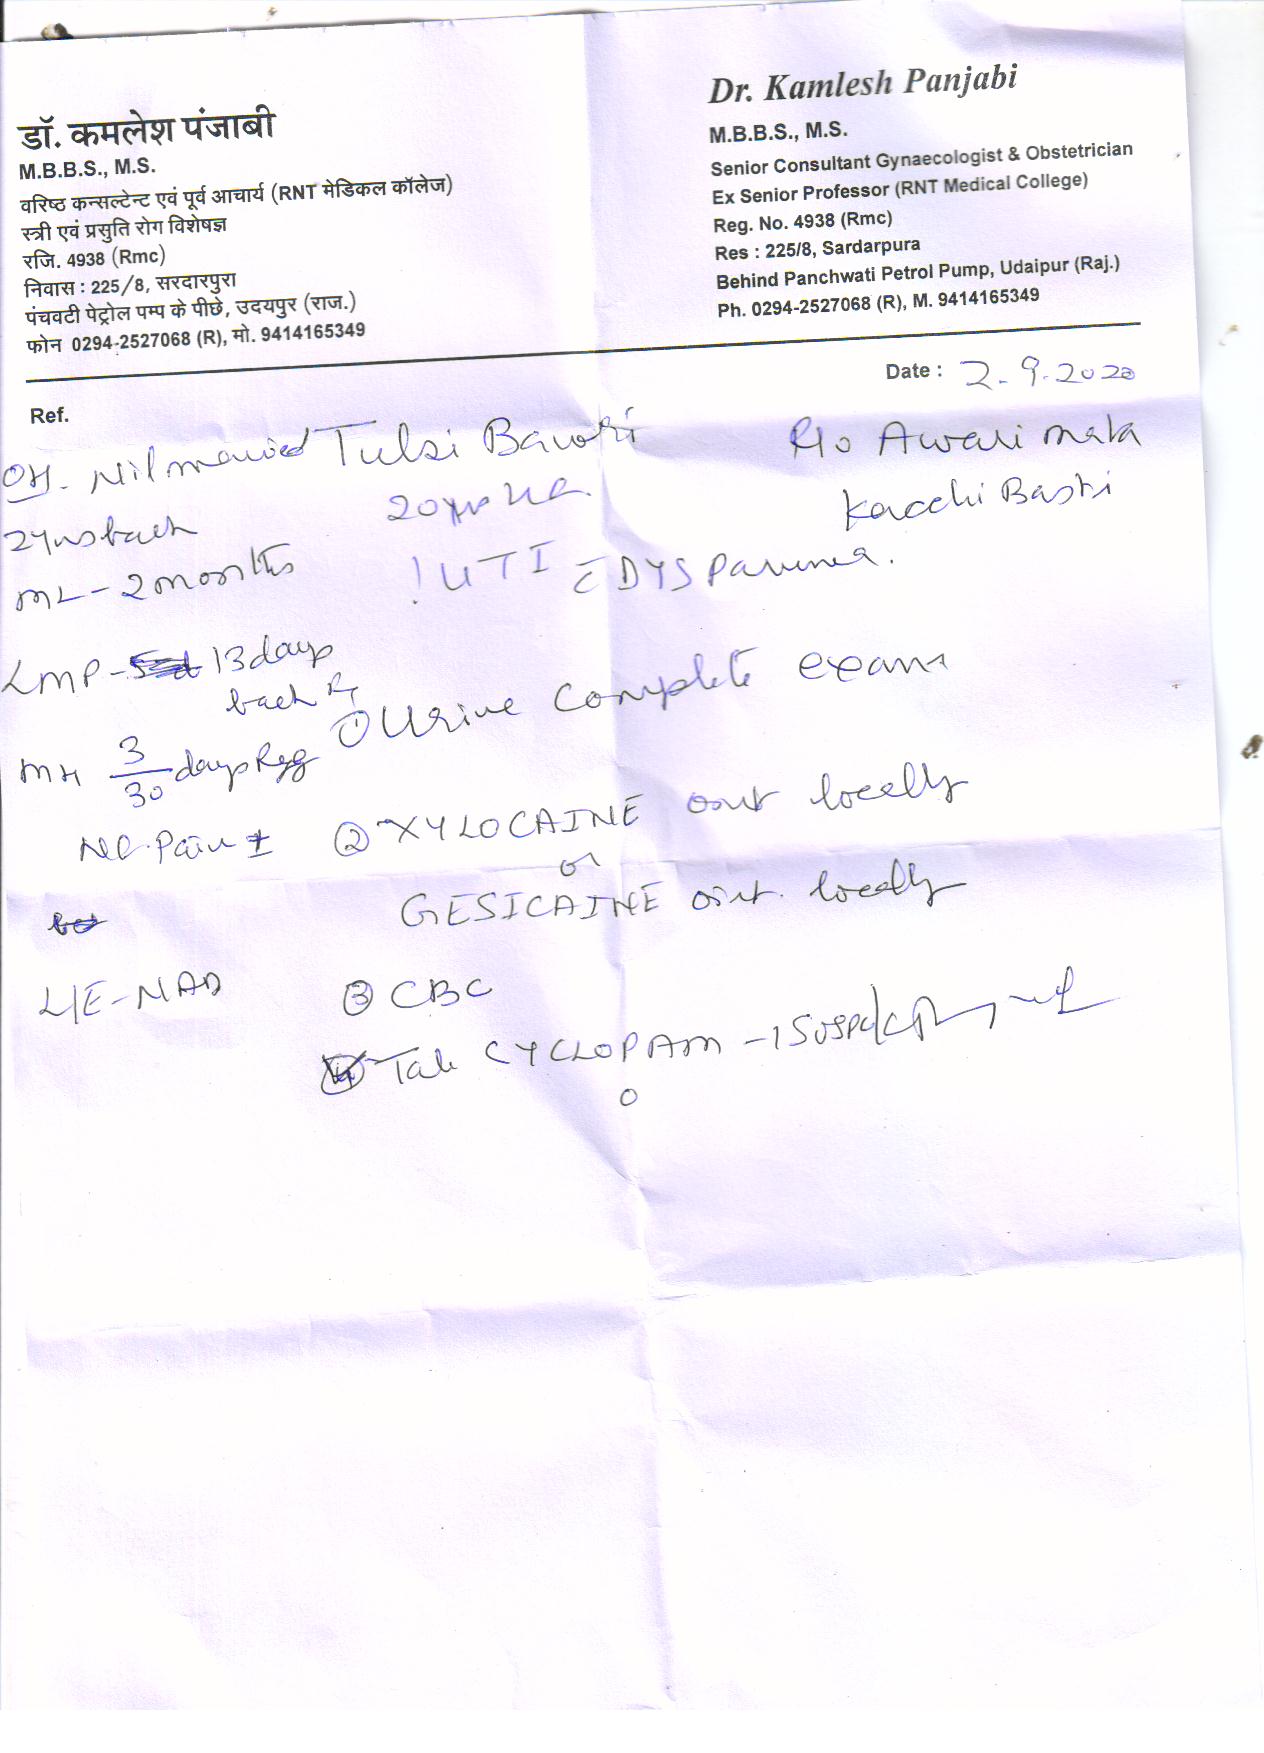 डॉ. कमलेश पंजाबी
M.B.B.S., M.S.
वरिष्ठ कन्सल्टेन्ट एवं पूर्व आचार्य (RNT मेडिकल कॉलेज)
स्त्री एवं प्रसुति रोग विशेषज्ञ
रजि. 4938 (Rmc)
निवास : 225/8, सरदारपुरा
पंचवटी पेट्रोल पम्प के पीछे, उदयपुर (राज.)
फोन 0294-2527068 (R), मो. 9414165349
Dr. Kamlesh Panjabi
M.B.B.S., M.S.
Senior Consultant Gynaecologist & Obstetrician
Ex Senior Professor (RNT Medical College)
Reg. No. 4938 (Rmc)
Res : 225/8, Sardarpura
Behind Panchwati Petrol Pump, Udaipur (Raj.)
Ph. 0294-2527068 (R), M. 9414165349
Date : 2.9.2020
Ref.
Tulsi
R/o Awari mata
Kacchi Basti
OH. Nil married
2yrs back
ML - 2 months
LMP - 13 days
back
MH 3/30 days Reg
Pain ±
L/E - NAD
20yrs
! UTI c̄ DYSpareunia.
① Urine Complete exam
② XYLOCAINE oint locally
or
GESICAINE oint. locally
③ CBC
Tab CYCLOPAM - 1 SOS